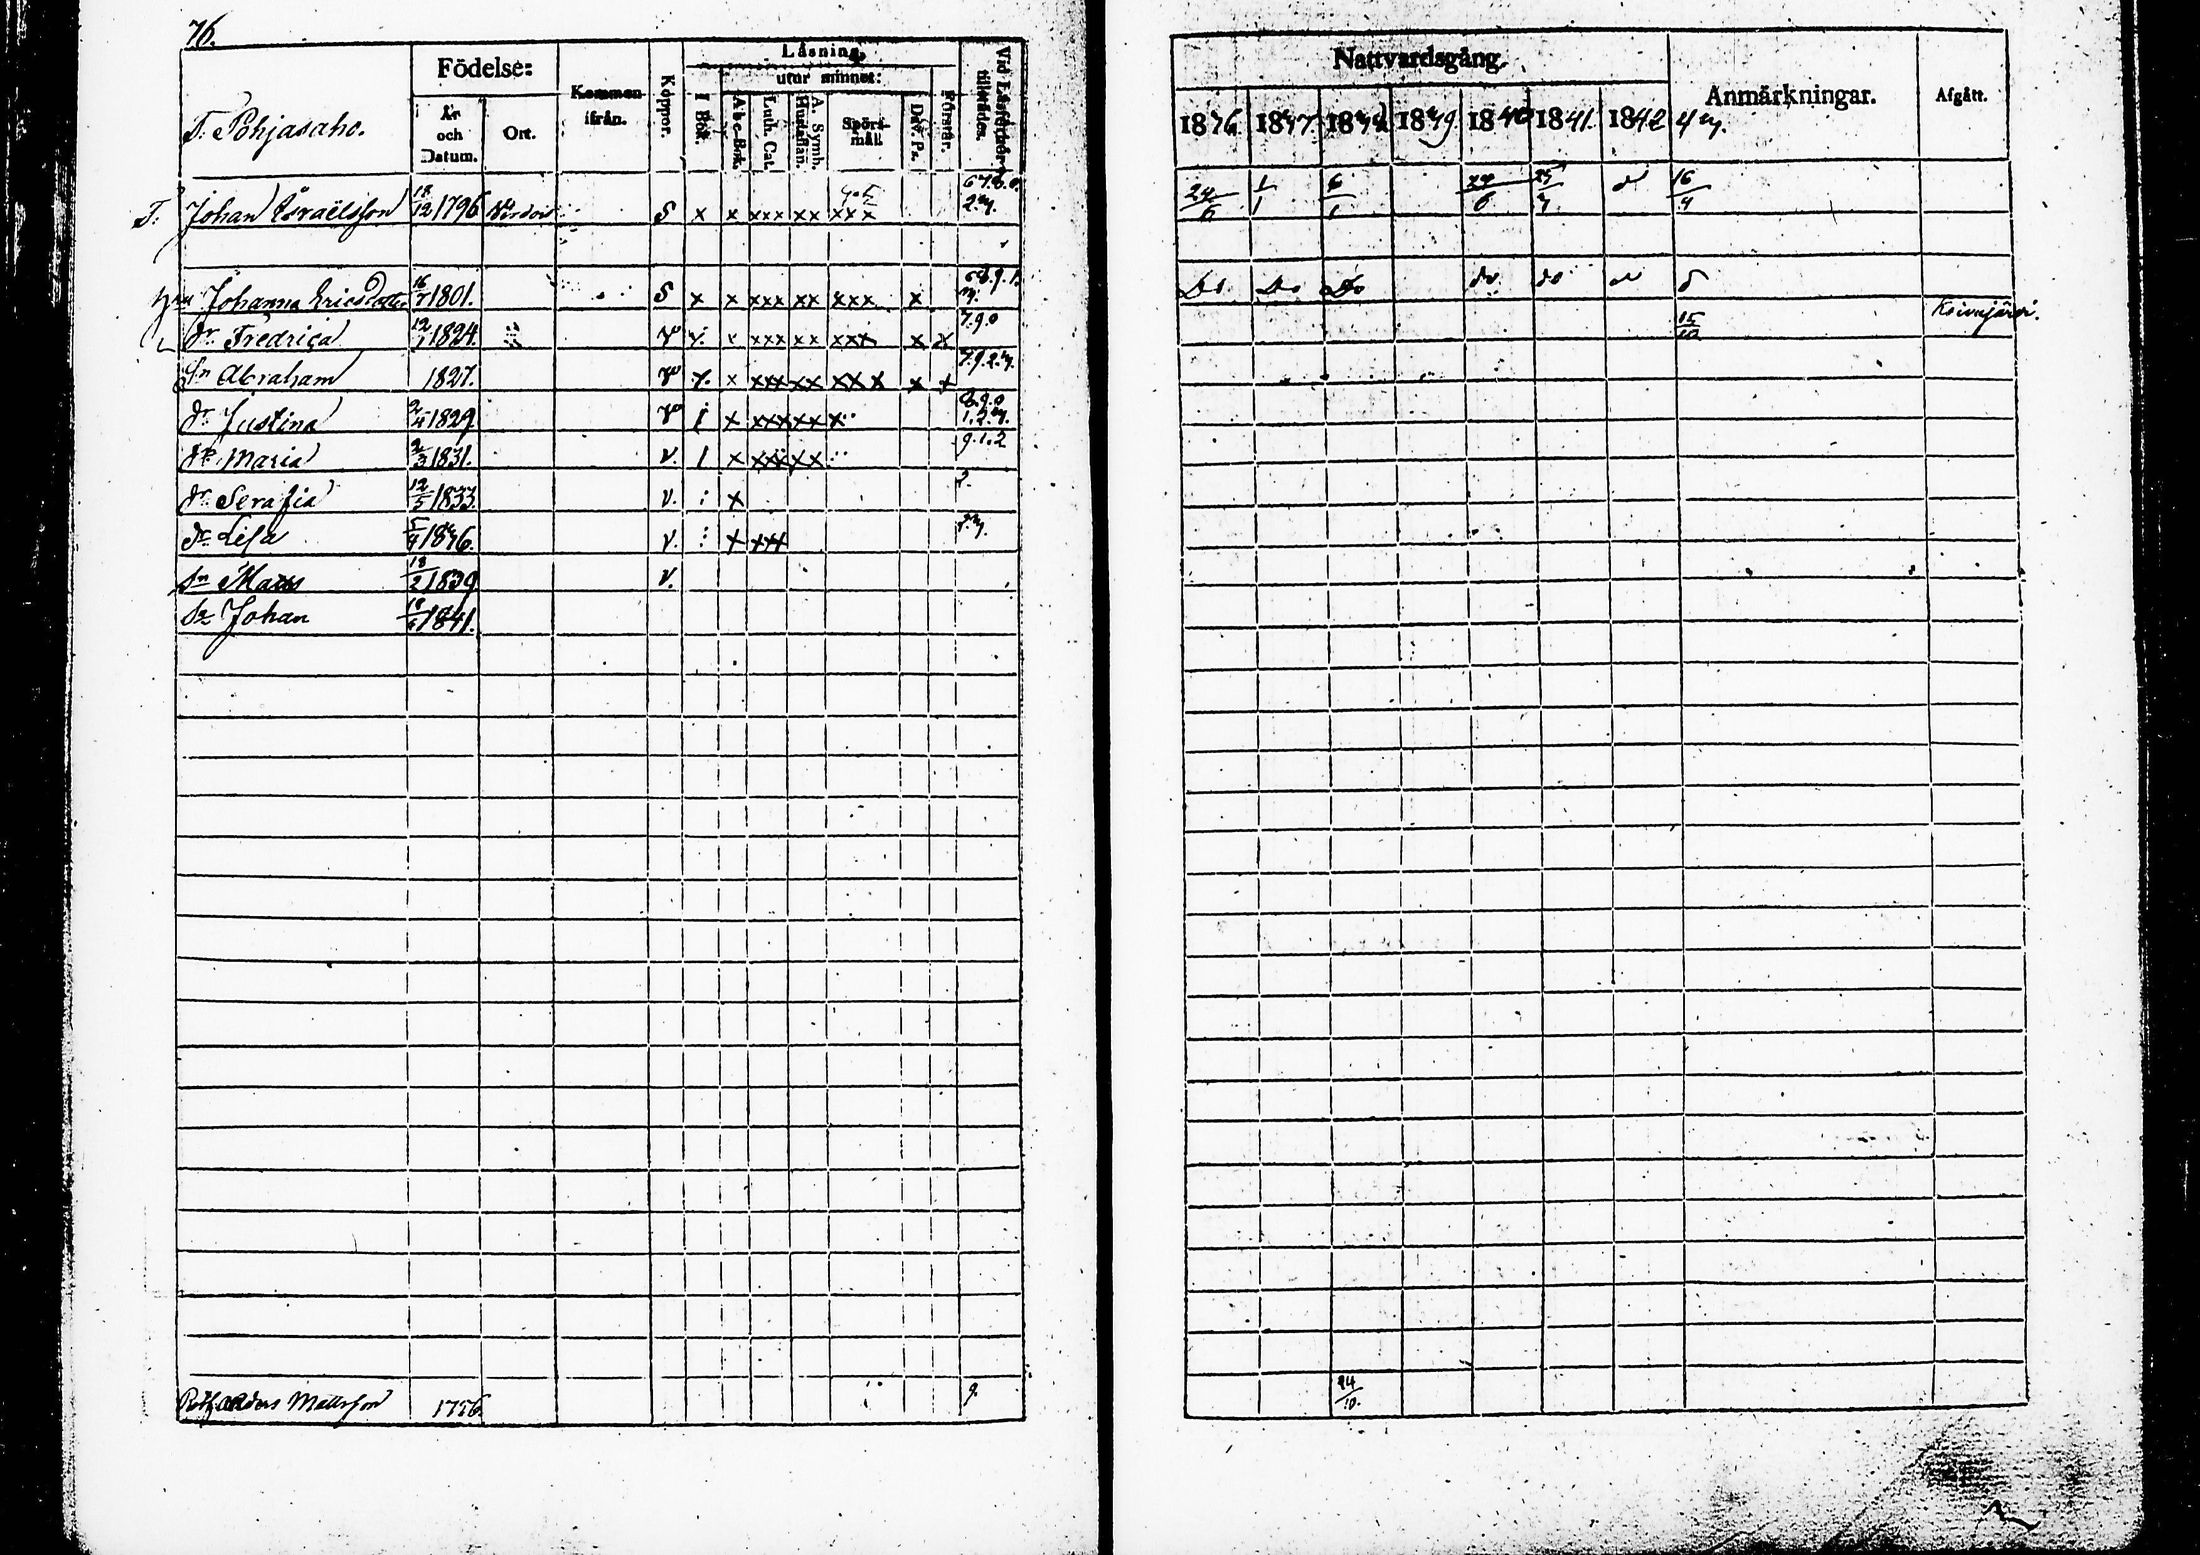 76.
T. Pohjasaho.
Födelse:
År och Datum.
Ort.
Kommen ifrån.
Koppor.
Läsning,
I Bok.
utur minnet:
A b c-Bok.
Luth. Cat.
A. Symb. Hustaflan.
Spörsmål.
Dav. Ps.
Förstår.
Vid Läsförhör tillstädes.
T. Johan Israëlsson 18/12 1796 Virdois S x x xxx xx xxx 6.7.8.0. 2.3.
Johanna Ericsdotter 16/7 1801. S x x xxx xx xxx x
dr. Fredrica 12/1 1824. x xxx xx xxx x x 7.9.0
Sn Abraham 1827. x xxx xx xxx x x 7.9.2.3.
dr. Justina 2/4 1829 x xxx xx x 8.9.0 1.2.3.
dr. Maria 2/3 1831. v. x xxx xx 9.1.2
dr. Serafia 12/5 1833. v. x 2.
dr. Lisa 5/4 1836. v. x xxx 2.3.
Sn Mats 18/2 1839 v.
Sn Johan 1841.
Anders Mattsson 1776. 9.
Nattvardsgång.
Anmärkningar.
Afgått.
1836 1837. 1838 1839. 1840 1841. 1842 43.
24/6 1/1 6/1 24/6 25/7 d 16/4
Do Do Do do do d d
15/10 Koivujärvi.
24/10.